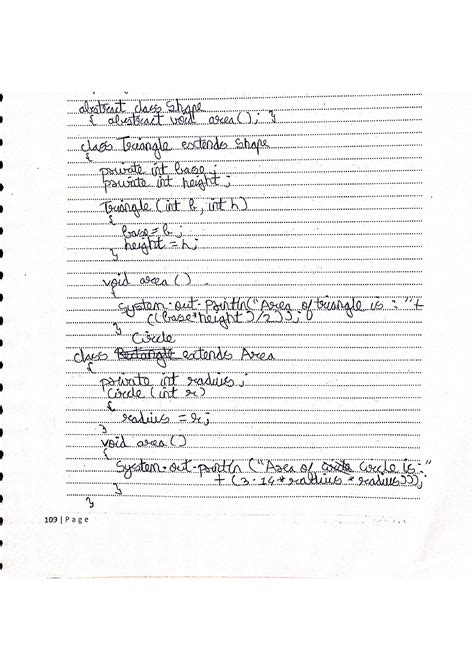 abstract class Shape
{ abstract void area(); }
class Triangle extends Shape
{
private int base;
private int height;
Triangle (int b, int h)
{
base = b;
height = h;
}
void area()
{
System.out.println("Area of triangle is : "+
((base*height)/2));
}
Circle
class Rectangle extends Area
{
private int radius;
Circle (int r)
{
radius = r;
}
void area()
{
System.out.println ("Area of circle is:"
+ (3.14*radius*radius));
}
}
109 | Page